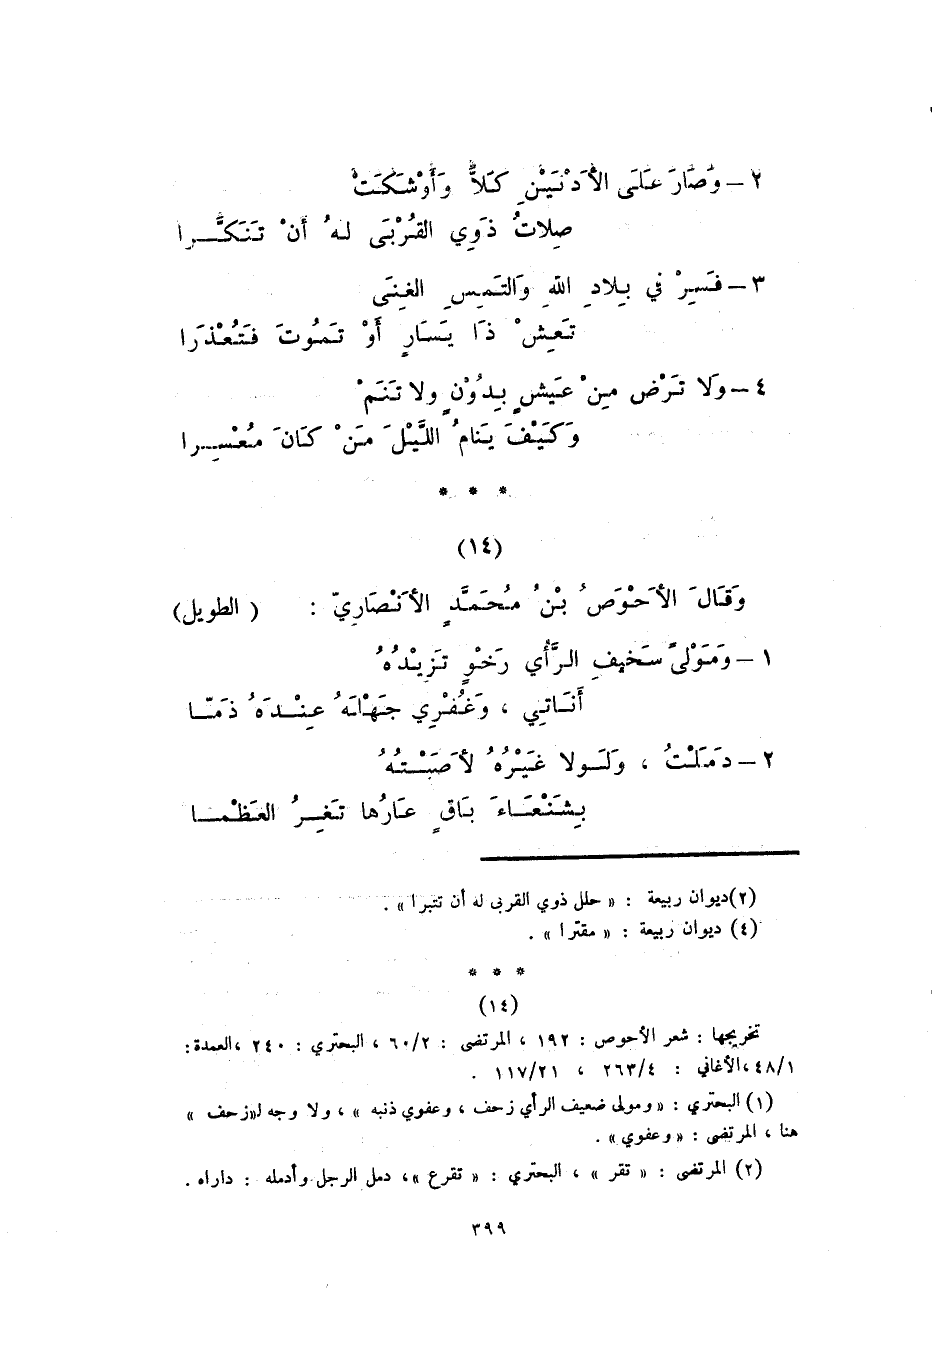 ٢ – وَصَارَ عَلَى الأَدْنَيْنِ كَلاًّ وَأَوْشَكَتْ
صِلاتُ ذَوِي القُرْبَى لهُ أنْ تَنَكَّرا
٣ – فَسِرْ في بِلادِ اللهِ وَالتَمِسِ الغِنَى
تَعِشْ ذَا يَسَارٍ أَوْ تَمُوتَ فَتُعْذَرَا
٤ – وَلا تَرْضَ مِنْ عَيْشٍ بِدُوْنٍ ولا تَنَمْ
وَكَيْفَ يَنَامُ اللَّيْلَ مَنْ كَانَ مُعْسِرا
* * *
(١٤)
وَقَالَ الأَحْوَصُ بْنُ مُحَمَّدٍ الأَنْصَارِيّ : ( الطويل)
١ – وَمَوْلىً سَخيفِ الرَّأْي رَخْوٍ تَزِيْدُهُ
أَنَاتِي ، وَغُفْرِي جَهْلَهُ عِنْدَهُ ذَمّا
٢ – دَمَلْتُ ، وَلَولا غَيْرُهُ لأَصَبْتُهُ
بِشَنْعَاءَ بَاقٍ عَارُها تَغِرُ العَظْمَا
(٢)ديوان ربيعة : « حلل ذوي القربى له أن تتبرا » .
(٤) ديوان ربيعة : « مقترا » .
* * *
(١٤)
تخريجها : شعر الأحوص : ١٩٢ ، المرتضى : ٦٠/٢ ، البحتري : ٢٤٠ ،العمدة:
٤٨/١ ،الأغاني : ٢٦٣/٤ ، ١١٧/٢١ .
(١) البحتري : « ومولى ضعيف الرأي زحف ، وعفوي ذنبه » ، ولا وجه لـ«زحف »
هنا ، المرتضى : « وعفوي » .
(٢) المرتضى : « تقر » ، البحتري : « تقرع »، دمل الرجل وأدمله : داراه .
٣٩٩